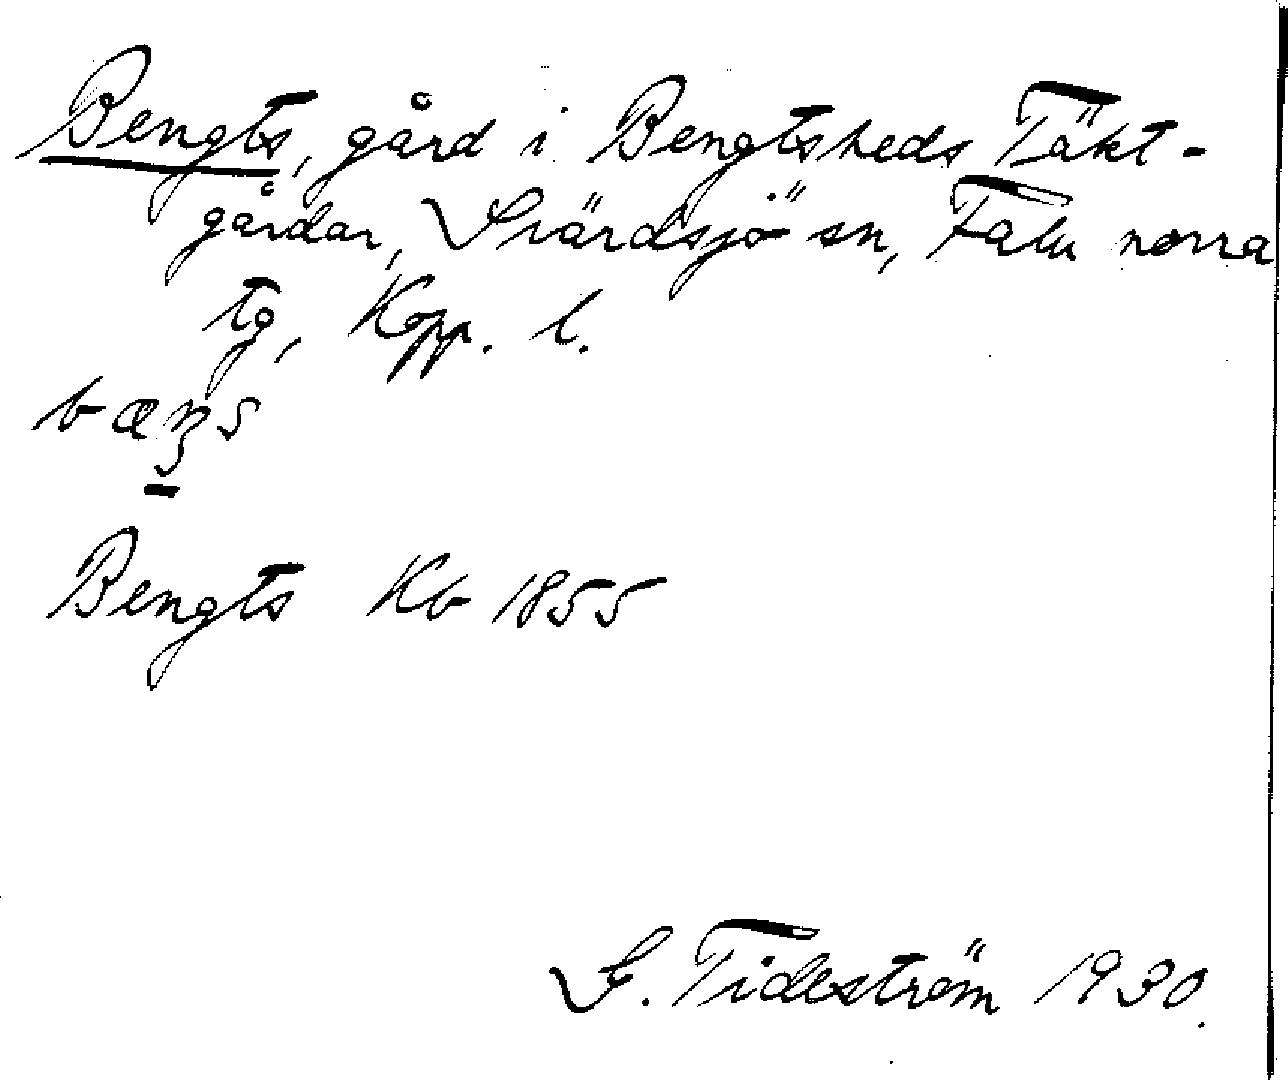 Bengts, gård i Bengtsheds Täkt-
gårdar, Svärdsjö sn, Falu norra
tg, Kopp. l.
bæŋs
Bengts Kb 1855
G. Tideström 1930.